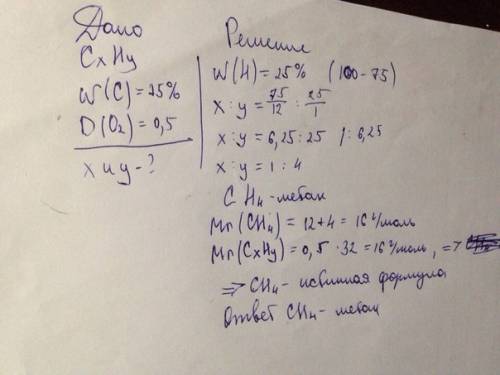 Дано
CxHy
W(C)=25%
D(O₂)=0,5
x и y - ?
Решение
W(H)=25% (100-75)
x:y = 75/12 : 25/1
x:y = 6,25:25 /:6,25
x:y = 1:4
CH₄-метан
Mr(CH₄) = 12+4 = 16 г/моль
Mr(CxHy) = 0,5·32 = 16 г/моль, =>
=> CH₄ - истинная формула
Ответ CH₄ - метан